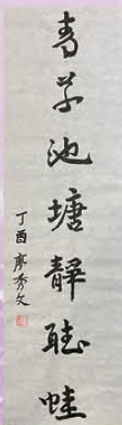 青草池塘靜聽蛙
丁酉 廖秀文